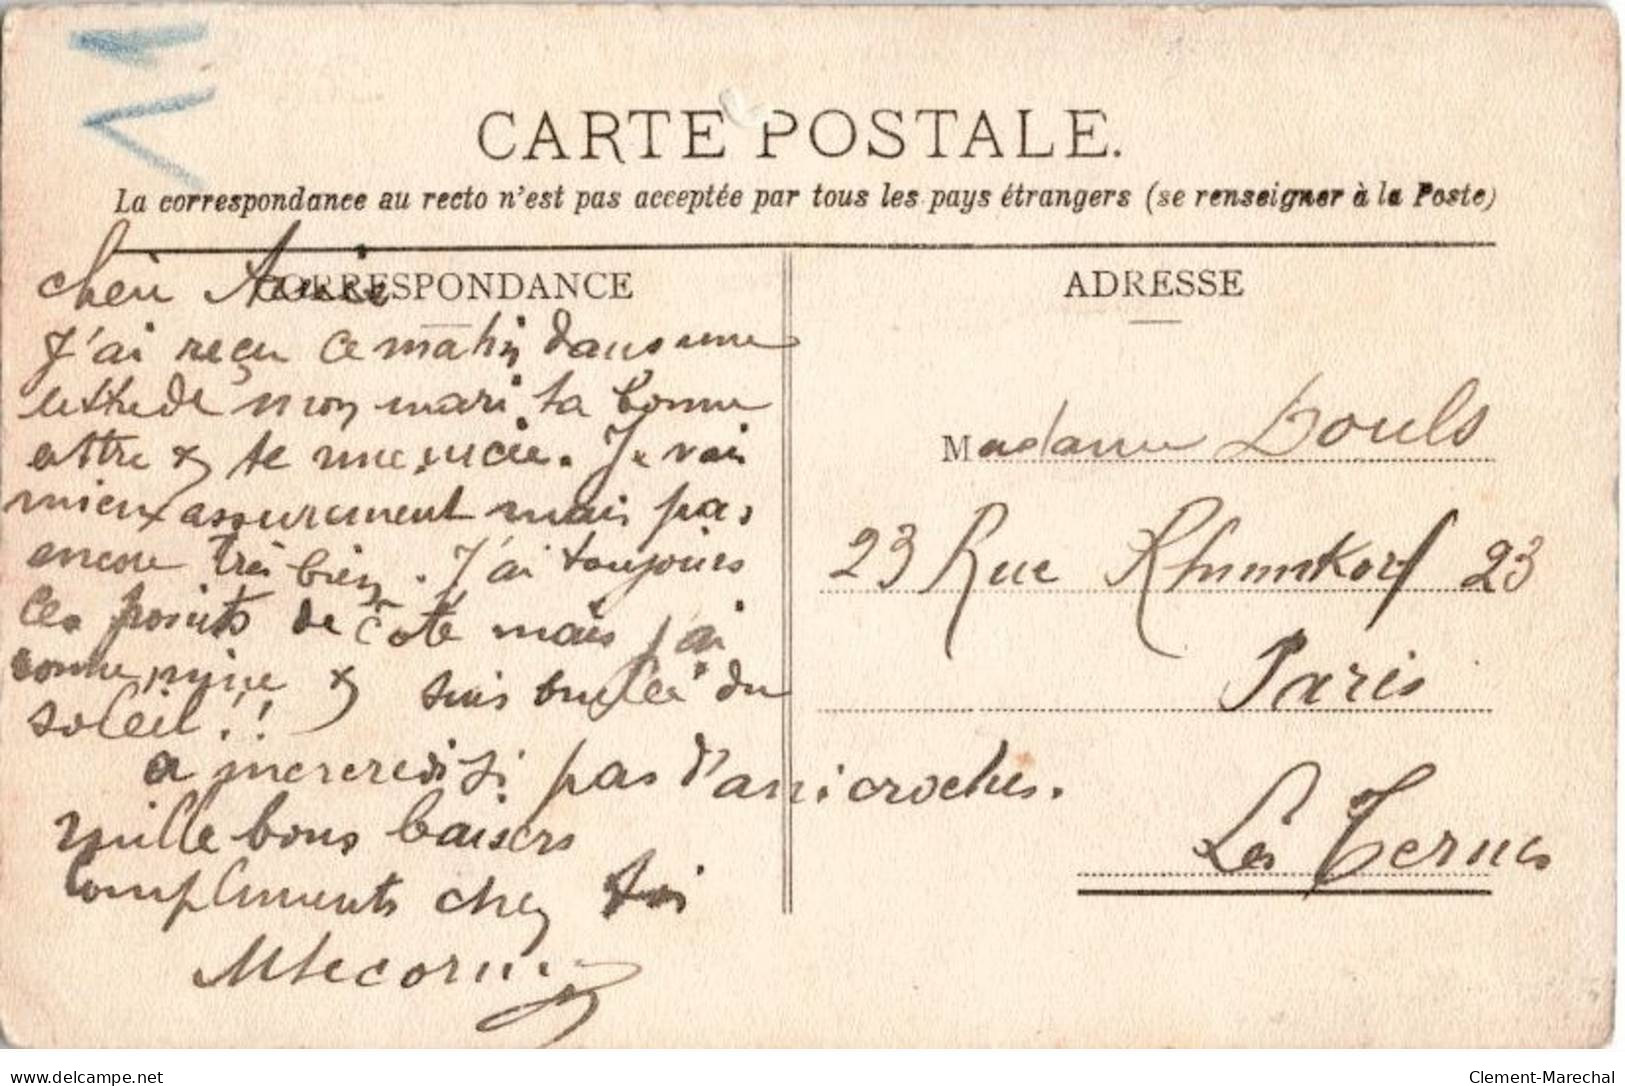 CARTE POSTALE.
La correspondance au recto n'est pas acceptée par tous les pays étrangers (se renseigner à la Poste)
CORRESPONDANCE
chère Amie
J'ai reçu ce matin dans une
lettre de mon mari ta bonne
lettre & te remercie. Je vais
mieux assurément mais pas
encore très bien. J'ai toujours
ces points de côté mais j'ai
bonne mine & suis brulée du
soleil!!
a mercredi si pas d'anicroches.
mille bons baisers
Compliments chez toi
ADRESSE
Madame Douls
23 Rue Rhumkorf 23
Paris
Les Ternes
delcampe.net
Clement-Marechal